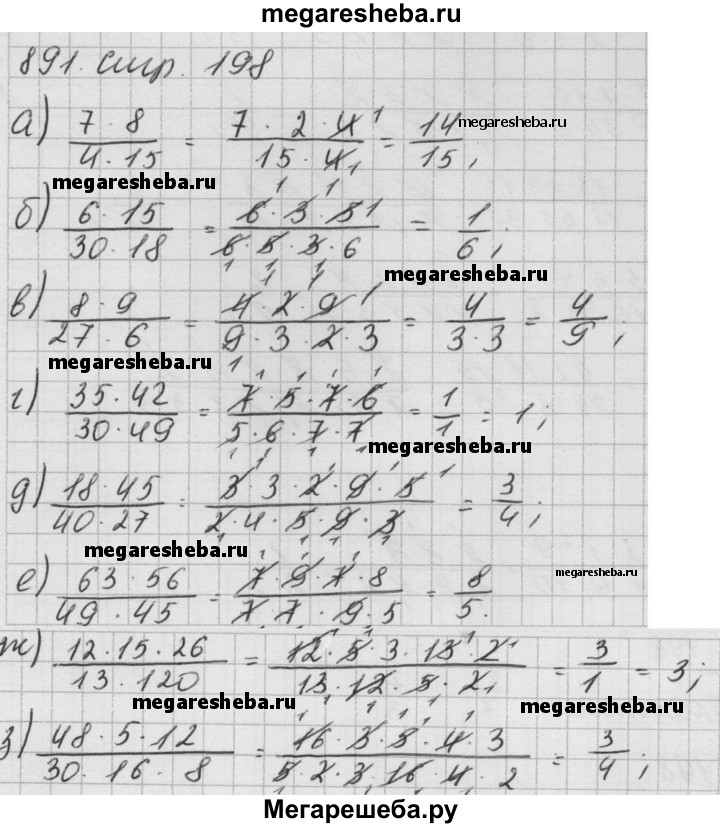 megaresheba.ru
891. стр. 198
а) 7 · 8 / 4 · 15 = 7 · 2 · 4 1 / 15 · 4 1 = 14 / 15 ; megaresheba.ru
megaresheba.ru
б) 6 · 15 / 30 · 18 = 6 · 3 · 5 1 / 6 · 5 · 3 · 6 = 1 / 6 ;
megaresheba.ru
в) 8 · 9 / 27 · 6 = 4 · 2 · 9 1 / 9 · 3 · 2 · 3 = 4 / 3 · 3 = 4 / 9 ;
megaresheba.ru
г) 35 · 42 / 30 · 49 = 7 · 5 · 7 · 6 / 5 · 6 · 7 · 7 = 1 / 1 = 1 ;
megaresheba.ru
д) 18 · 45 / 40 · 27 = 3 · 3 · 2 · 9 · 5 1 / 2 · 4 · 5 · 9 · 3 = 3 / 4 ;
megaresheba.ru
е) 63 · 56 / 49 · 45 = 7 · 9 · 7 · 8 / 7 · 7 · 9 · 5 = 8 / 5 . megaresheba.ru
ж) 12 · 15 · 26 / 13 · 120 = 12 · 5 · 3 · 13 · 2 1 / 13 · 12 · 5 · 2 1 = 3 / 1 = 3 ;
megaresheba.ru megaresheba.ru
з) 48 · 5 · 12 / 30 · 16 · 8 = 16 · 3 · 5 · 4 · 3 / 5 · 2 · 3 · 16 · 4 · 2 = 3 / 4 ;
Мегарешеба.ру